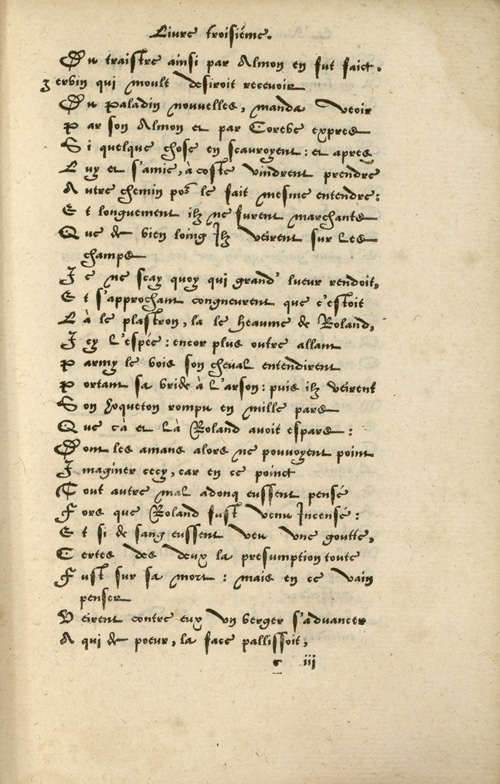 Livre troisiéme.
Du traistre ainsi par Almon en fut faict.
Zerbin qui moult desiroit recevoir
Du paladin nouvelles, manda veoir
Par son Almon et par Corebe expres
Si quelque chose en scauroyent: et apres
Luy et s'amie, à coste vindrent prendre
Autre chemin por le fait mesme entendre:
Et longuement ilz ne furent marchants
Que de bien loing Ilz veirent sur les
champs
Je ne scay quoy qui grand' lueur rendoit,
Et s'approchant congneurent que c'estoit
Là le plastron, la le heaume de Roland,
Icy l'espée: encor plus outre allant
Parmy le bois son cheval entendirent
Portant sa bride à l'arson: puis ilz veirent
Son hoqueton rompu en mille pars
Que cà et là Roland avoit espars:
Dont les amans alors ne pouvoyent point
Imaginer cecy, car en ce poinct
Tout autre mal adonq eussent pensé
Fors que Roland fust venu Incensé:
Et si de sang eussent veu une goutte,
Certes des deux la presumption toute
Fust sur sa mort: mais en ce vain
penser
Veirent contre eux un berger s'advancer
A qui de poeur, la face pallissoit,
c iii